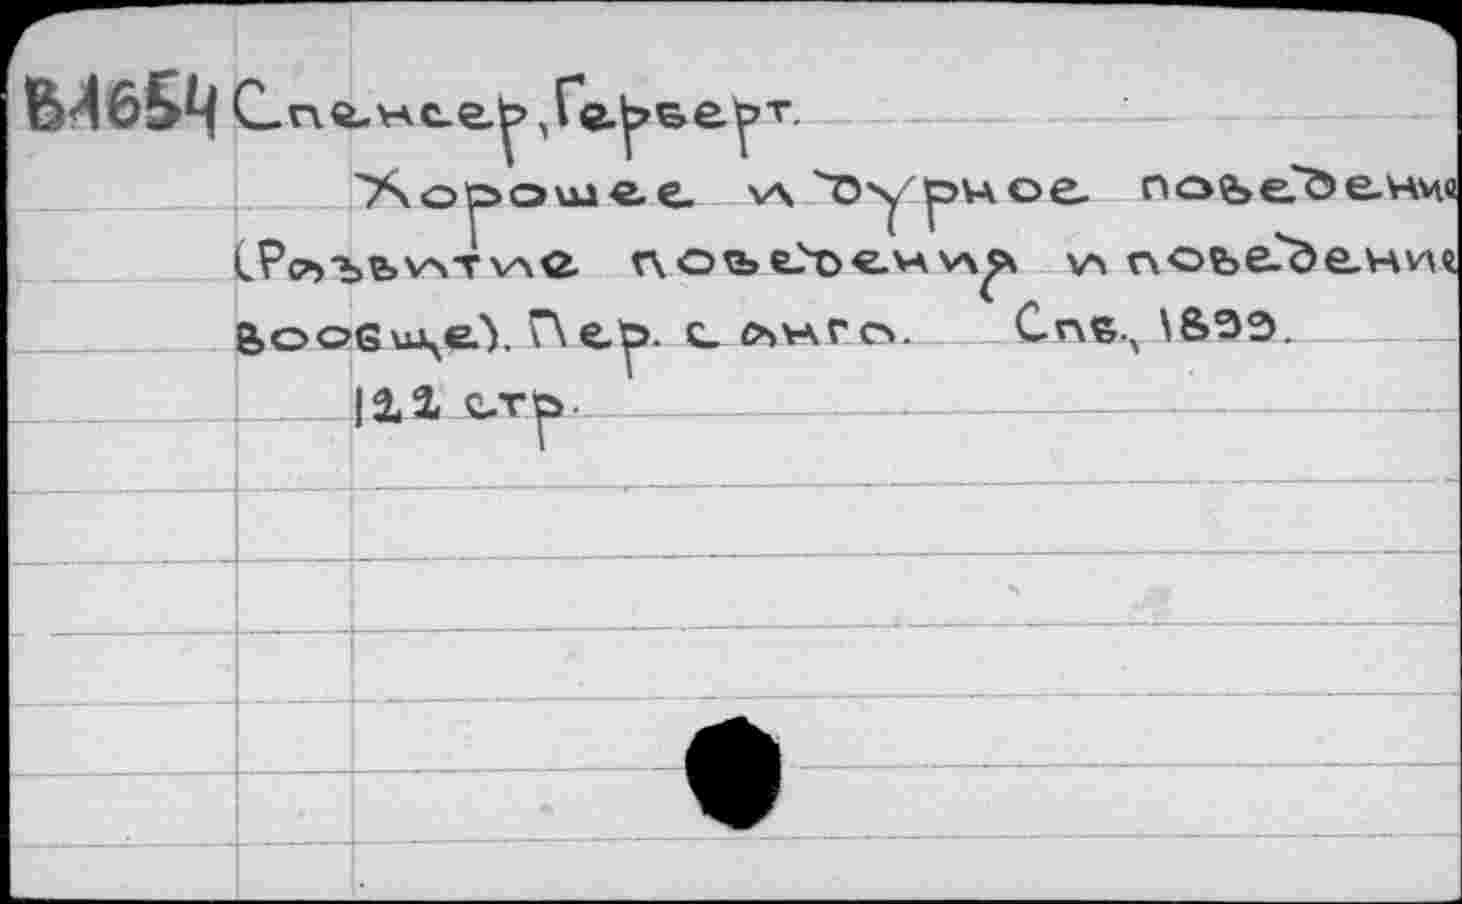 В1654 Спенсер, Герберт.
Хорошее и дурное поведение
(Развитие поведения и поведение
вообще). Пер. с англ. Спб., 1899.
122 стр.